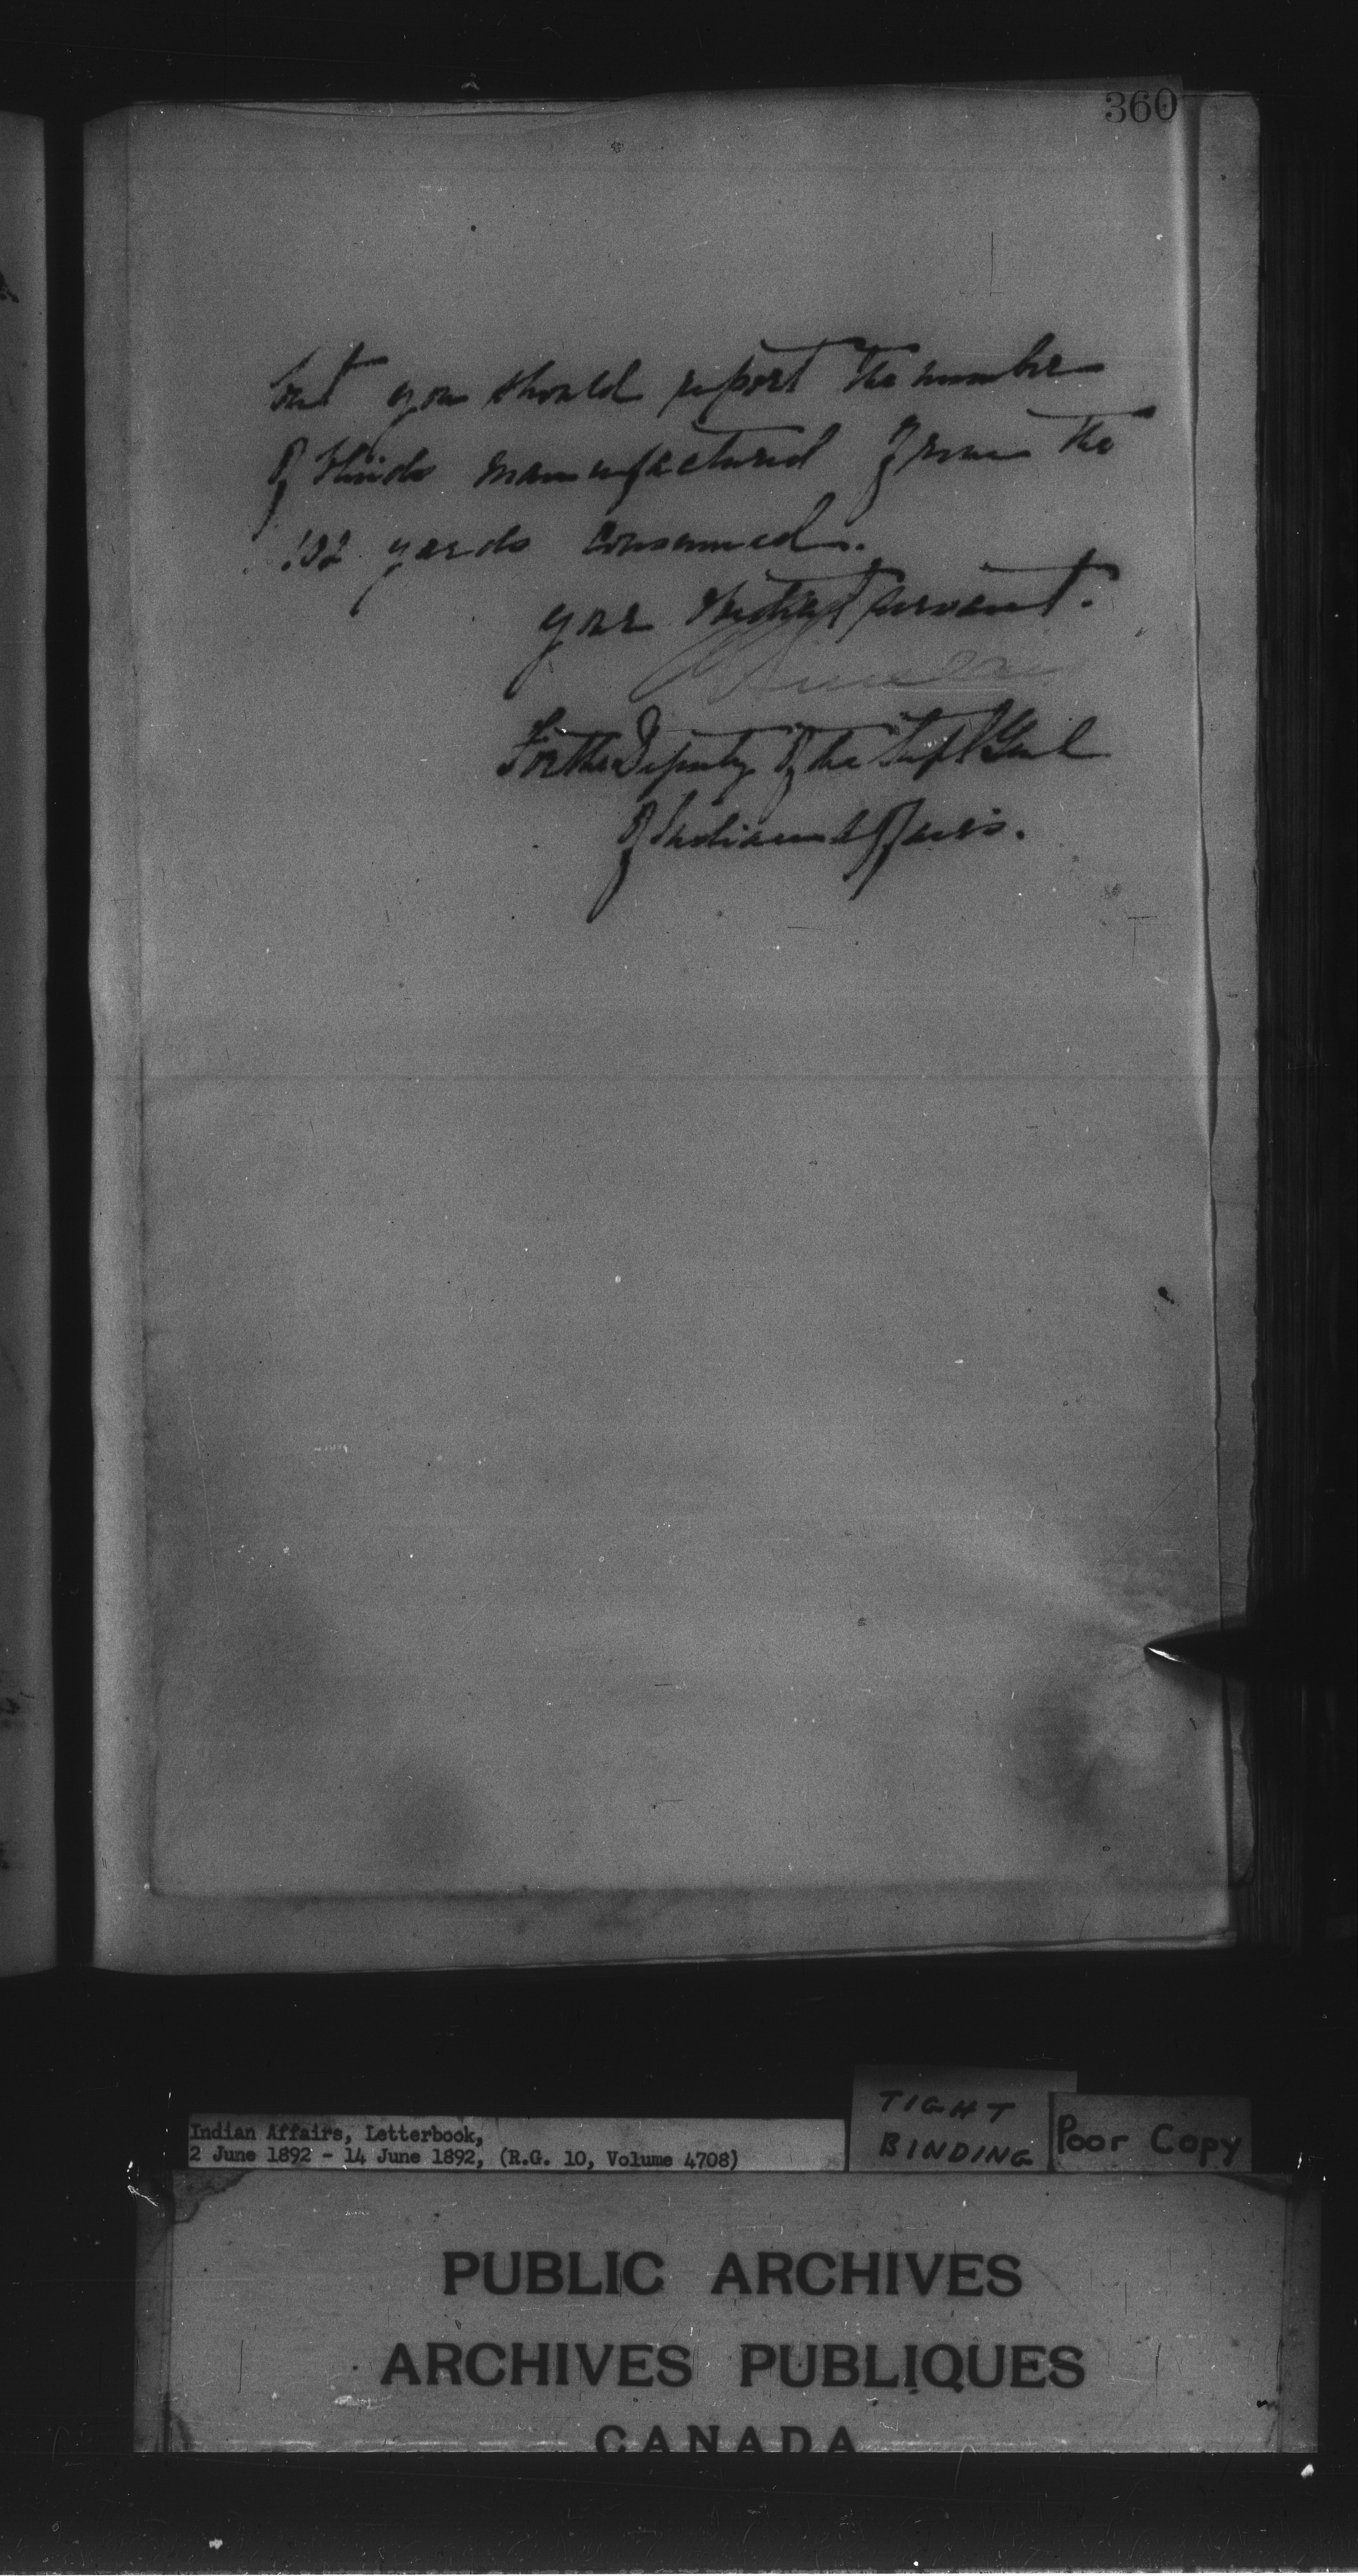 360
but you should report the number
of blinds manufactured from the
132 yards consumed.
your obedient servant.
For the Deputy of the Supt Genl
of Indian Affairs.
Indian Affairs, Letterbook,
2 June 1892 - 14 June 1892, (R.G. 10, Volume 4708)
TIGHT
BINDING
Poor Copy
PUBLIC ARCHIVES
ARCHIVES PUBLIQUES
CANADA